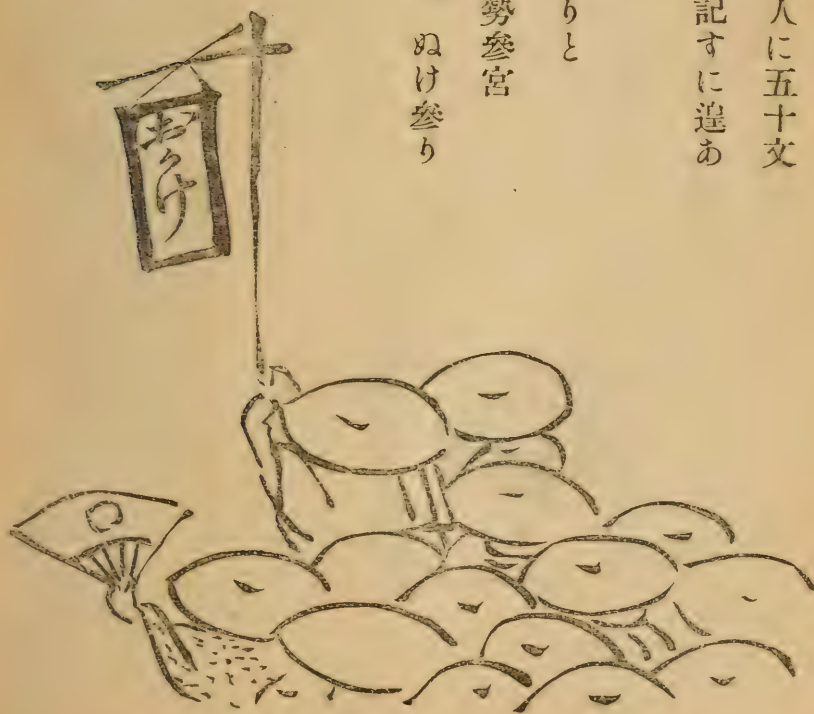 人に五十文
記すに遑あ
りと
勢參宮
ぬけ參り
おかけ